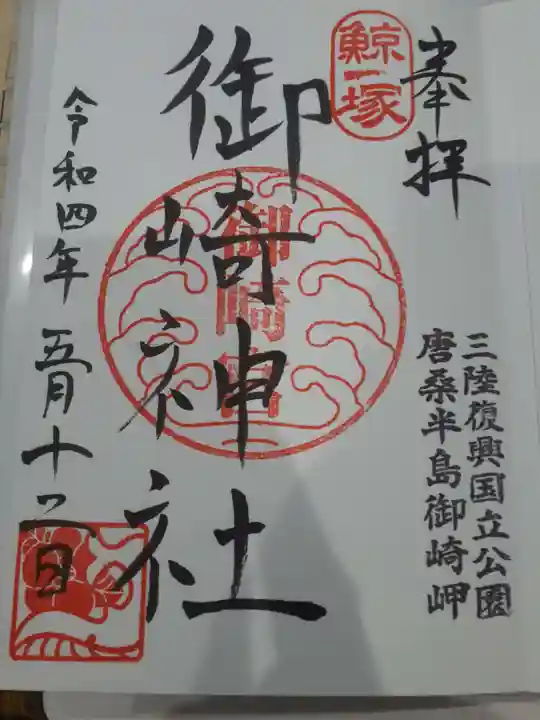 奉拝
鯨塚
三陸復興国立公園
唐桑半島御崎岬
御崎神社
御崎宮
令和四年五月十二日